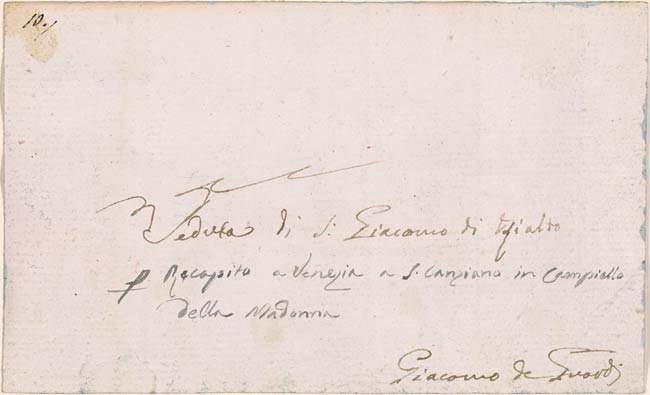 10./
Veduta di S. Giacomo di Rialto
p Recapito a Venezia a S. Canziano in Campiello
della Madonna
Giacomo de Guardi